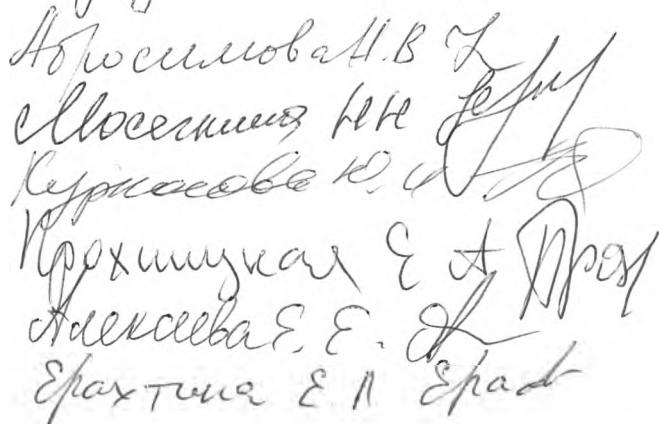 Абросимова Н.В
Мосягина НН
Курносова Ю.А
Прохницкая Е А Прох
Алексеева Е. Е.
Ерахтина Е Л Ерах